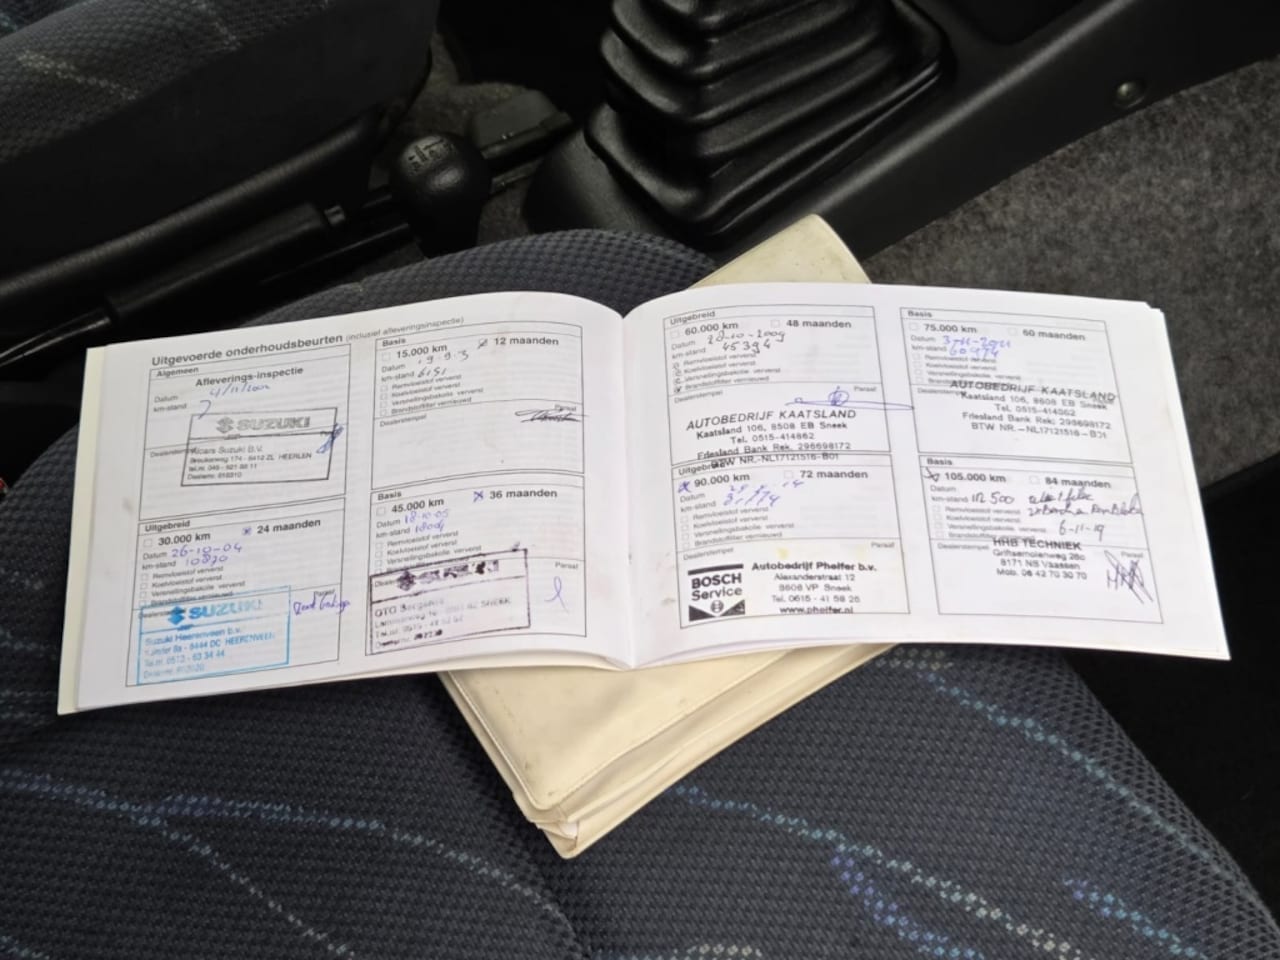 Uitgevoerde onderhoudsbeurten (inclusief afleveringsinspectie)
Algemeen
Afleverings-inspectie
Datum 4/11/2002
km-stand
SUZUKI
Alcars Suzuki B.V.
HEERLEN
Uitgebreid
30.000 km 24 maanden
Datum 26-10-04
km-stand 10870
Remvloeistof ververst
Koelvloeistof ververst
Versnellingsbakolie ververst
Brandstoffilter vernieuwd
SUZUKI
Suzuki Heerenveen b.v.
8444 DC HEERENVEEN
Tel.nr. 0513 - 63 34 44
Basis
15.000 km 12 maanden
Datum
km-stand
Remvloeistof ververst
Koelvloeistof ververst
Versnellingsbakolie ververst
Brandstoffilter vernieuwd
Dealerstempel Paraaf
Basis
45.000 km 36 maanden
Datum 18-10-05
km-stand
Remvloeistof ververst
Koelvloeistof ververst
Versnellingsbakolie ververst
Brandstoffilter vernieuwd
Paraaf
SNEEK
Uitgebreid
60.000 km 48 maanden
Datum 22-10-2009
km-stand 45394
Remvloeistof ververst
Koelvloeistof ververst
Versnellingsbakolie ververst
Brandstoffilter vernieuwd
Dealerstempel Paraaf
AUTOBEDRIJF KAATSLAND
Kaatsland 106, 8608 EB Sneek
Tel. 0515-414862
Friesland Bank Rek. 296698172
BTW NR.-NL17121516-B01
Uitgebreid
90.000 km 72 maanden
Datum
km-stand
Remvloeistof ververst
Koelvloeistof ververst
Versnellingsbakolie ververst
Brandstoffilter vernieuwd
Dealerstempel Paraaf
BOSCH
Service
Autobedrijf Phelfer b.v.
Alexanderstraat 12
8608 VP Sneek
Tel. 0515 - 41 58 25
www.phelfer.nl
Basis
75.000 km 60 maanden
Datum
km-stand 60974
Remvloeistof ververst
Koelvloeistof ververst
Versnellingsbakolie ververst
AUTOBEDRIJF KAATSLAND
Kaatsland 106, 8608 EB Sneek
Tel. 0515-414862
Friesland Bank Rek. 296698172
BTW NR.-NL17121516-B01
Basis
105.000 km 84 maanden
Datum
km-stand 112500
Remvloeistof ververst
Koelvloeistof ververst
Versnellingsbakolie ververst
Brandstoffilter vernieuwd
6-11-19
Dealerstempel Paraaf
HHB TECHNIEK
Griftsemolenweg 28c
8171 NS Vaassen
Mob. 06 42 70 30 70